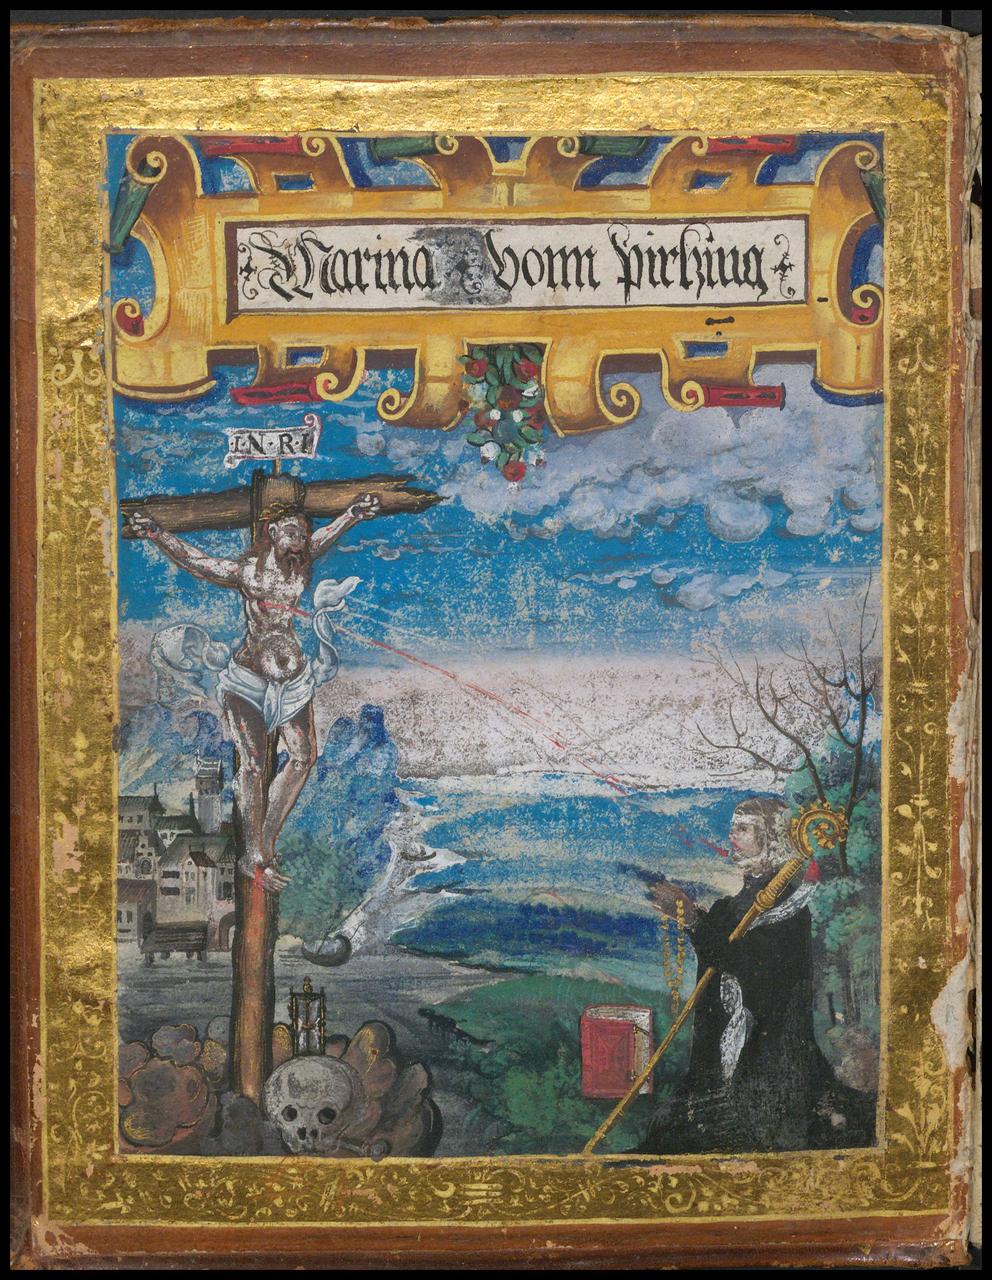 Marina vonn pirking
I·N·R·I